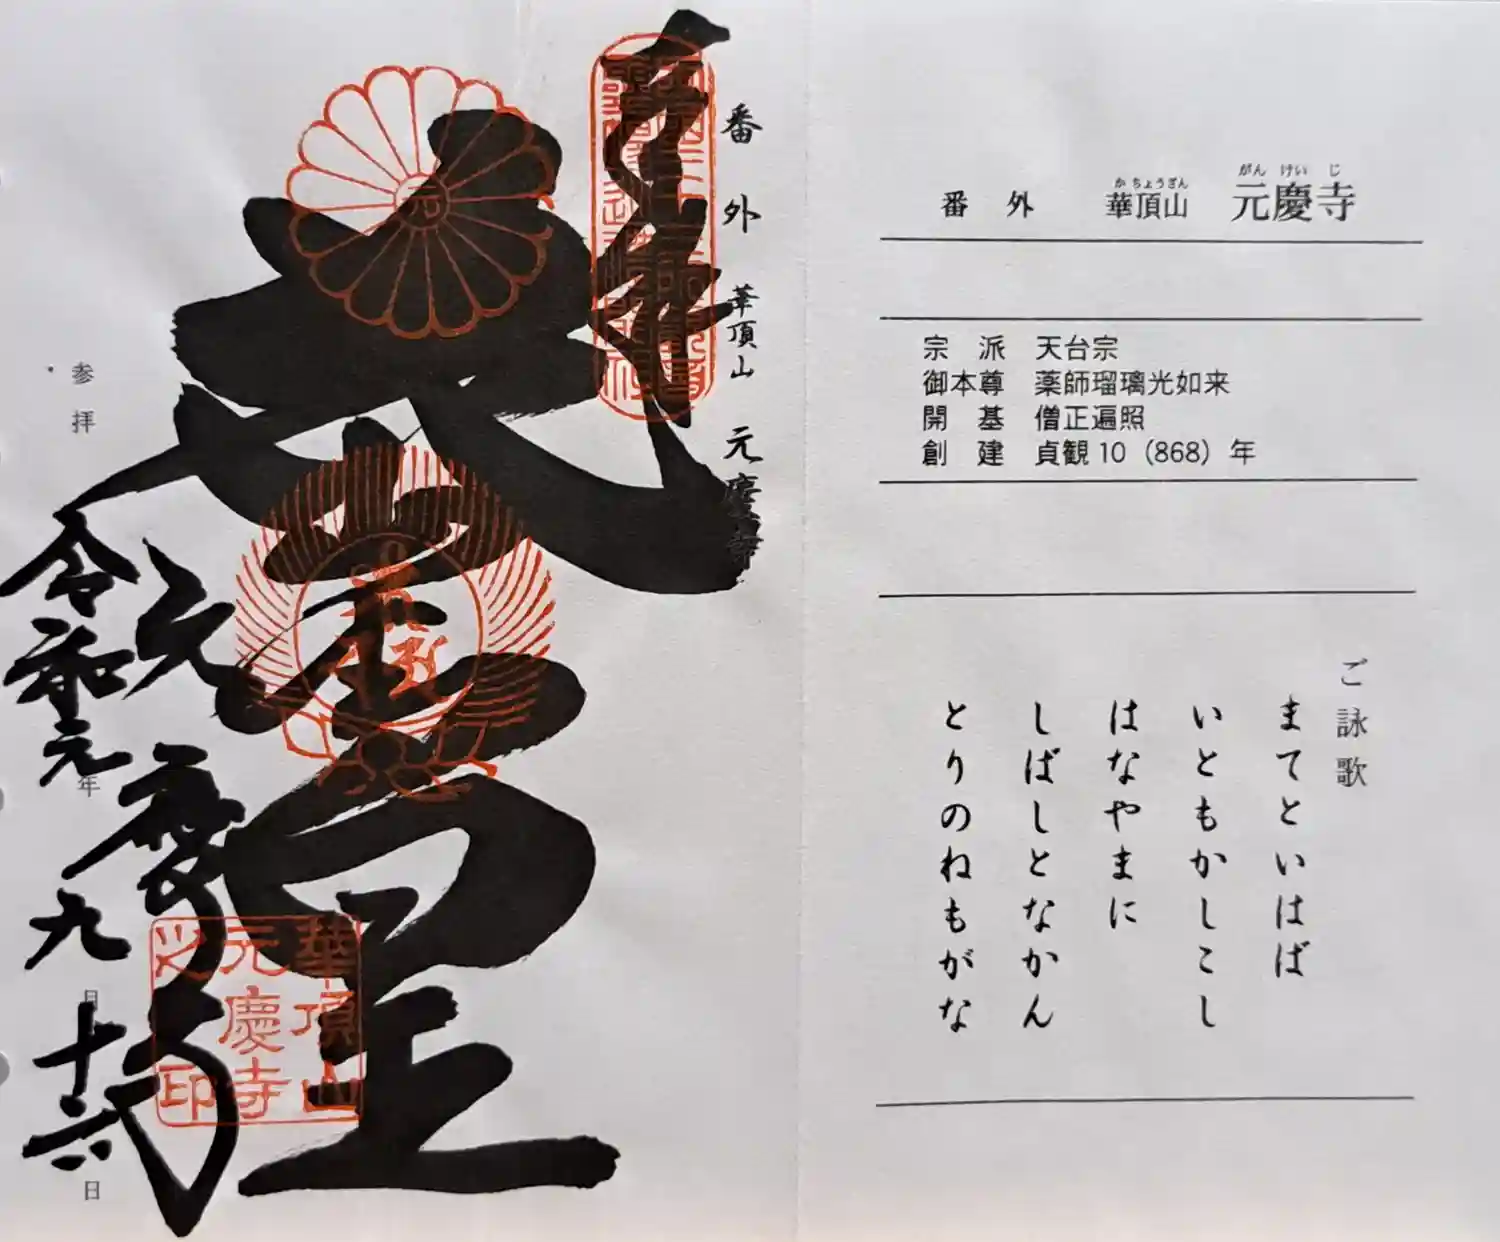 番外 華頂山 元慶寺
がん けい じ
か ちょうざん
番 外 華頂山 元慶寺
宗 派 天台宗
御本尊 薬師瑠璃光如来
開 基 僧正遍照
創 建 貞観10（868）年
ご詠歌
まてといはば
いともかしこし
はなやまに
しばしとなかん
とりのねもがな
奉拝
元慶寺
参拝
令和元年
九月
十六日
元
華頂山
元慶寺
之印